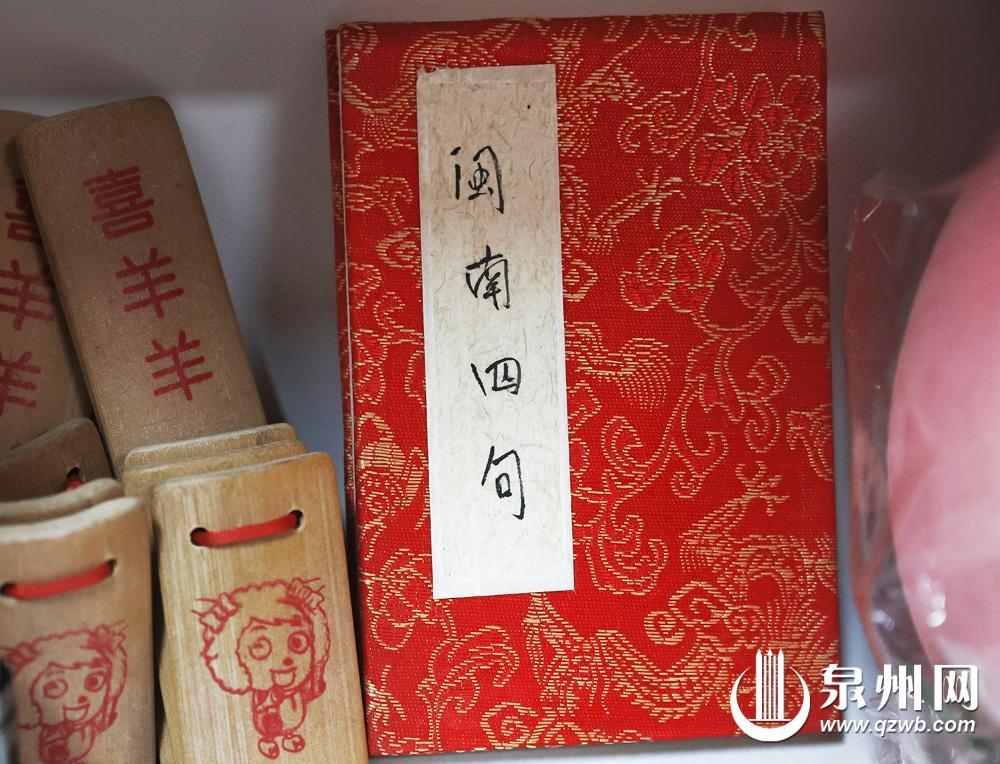 闽南四句
喜羊羊
喜羊羊
泉州网
www.qzwb.com